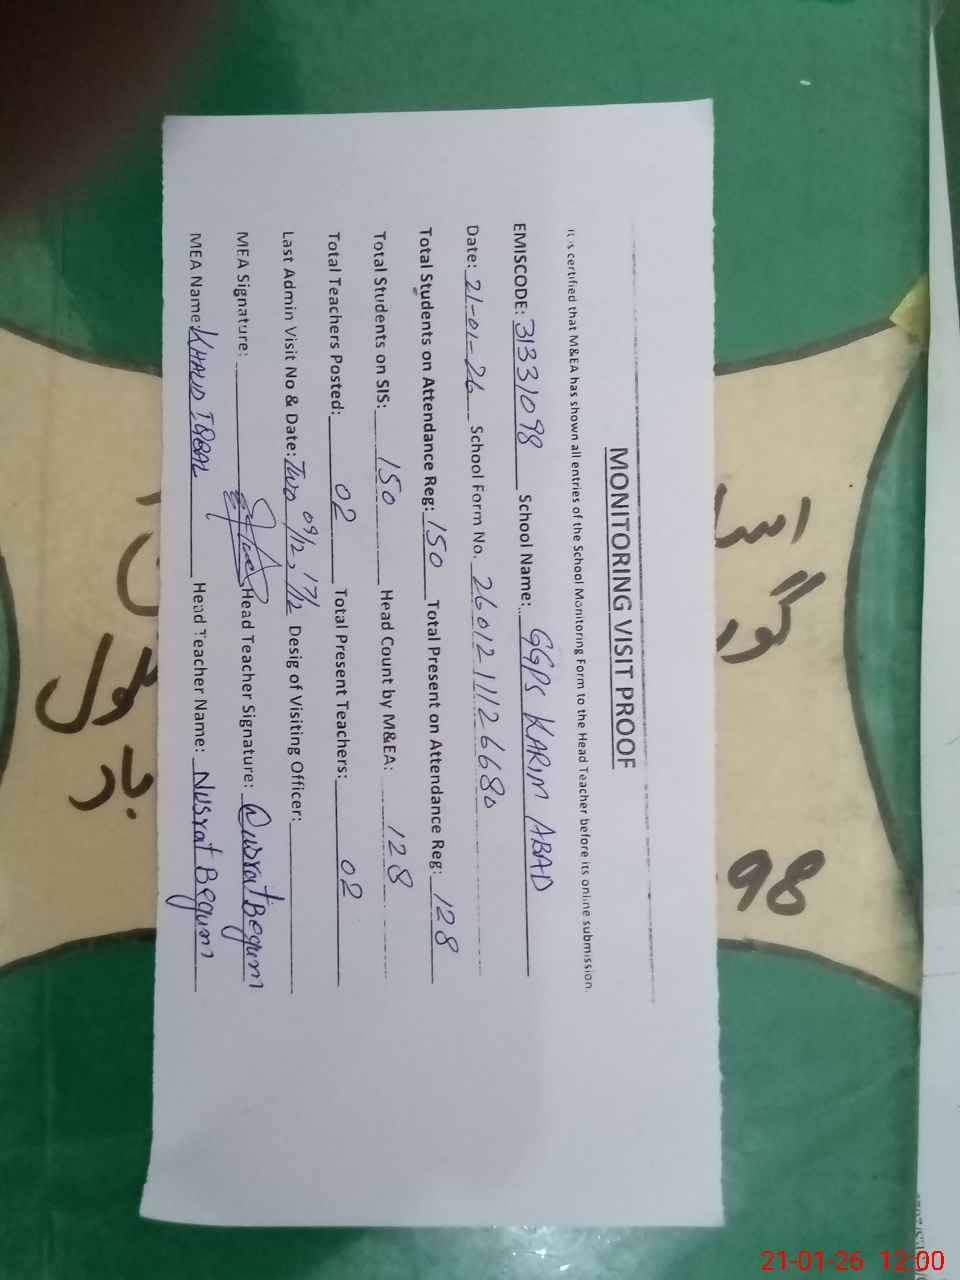 MONITORING VISIT PROOF
It is certified that M&EA has shown all entries of the School Monitoring Form to the Head Teacher before its online submission.
EMISCODE: 31331098 School Name: GGPS KARIM ABAD
Date: 21-01-26 School Form No. 2601211126680
Total Students on Attendance Reg: 150 Total Present on Attendance Reg: 128
Total Students on SIS: 150 Head Count by M&EA: 128
Total Teachers Posted: 02 Total Present Teachers: 02
Last Admin Visit No & Date: Two 09/12, 17/12 Desig of Visiting Officer:
MEA Signature: Head Teacher Signature: Nusrat Begum
MEA Name: KHALID IQBAL Head Teacher Name: Nusrat Begum
گور
لول
باد
98
21-01-26 12:00